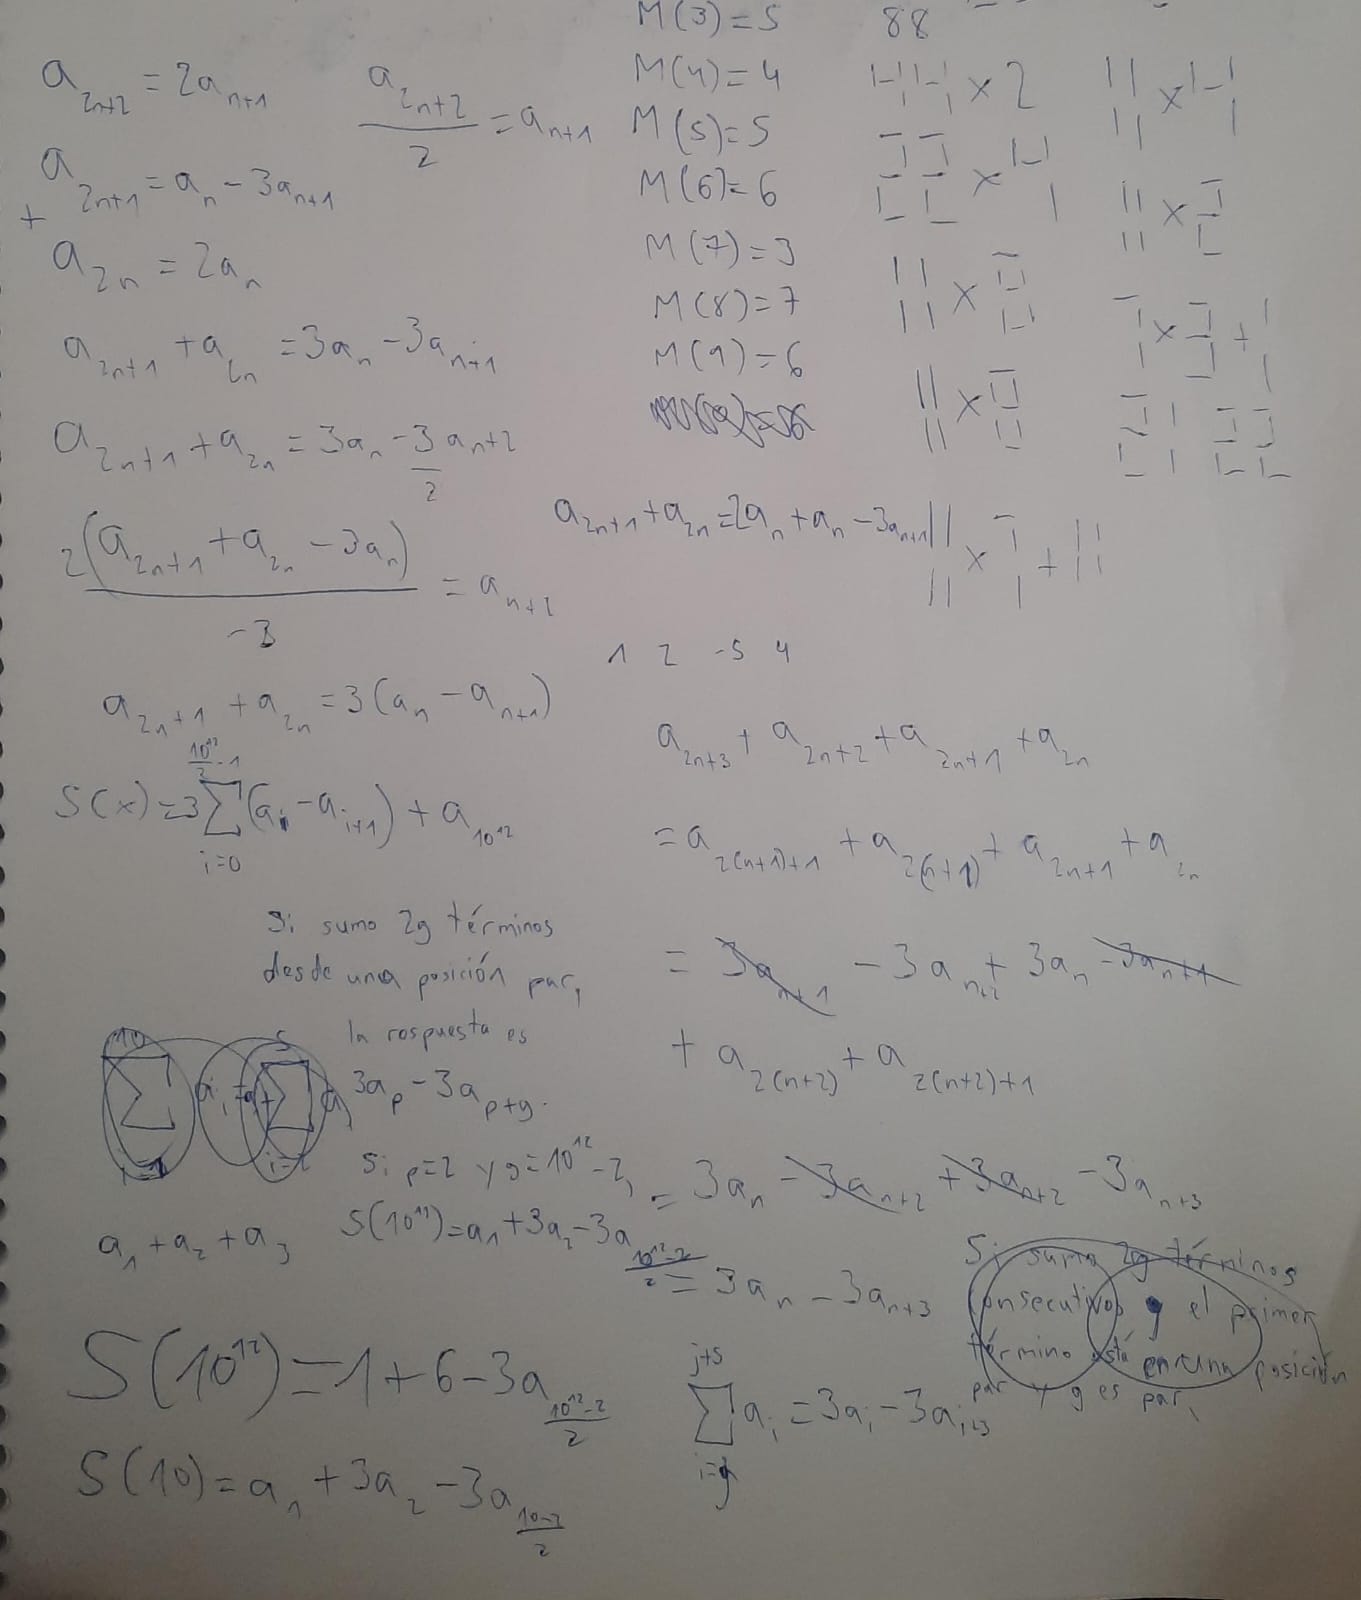 a_{2n+2} = 2a_{n+1}
\frac{a_{2n+2}}{2} = a_{n+1}
a_{2n+1} = a_n - 3a_{n+1}
+
a_{2n} = 2a_n
a_{2n+1} + a_{2n} = 3a_n - 3a_{n+1}
a_{2n+1} + a_{2n} = 3a_n - \frac{3}{2} a_{n+2}
\frac{2(a_{2n+1} + a_{2n} - 3a_n)}{-3} = a_{n+2}
a_{2n+1} + a_{2n} = 3(a_n - a_{n+1})
S(x) = 3 \sum_{i=0}^{\frac{10^{12}}{2} - 1} (a_i - a_{i+1}) + a_{10^{12}}
Si sumo 2g términos
desde una posición par,
la rospuesta es
3a_p - 3a_{p+g}.
Si p=2 y g=10^{12}-2,
S(10^{12}) = a_1 + 3a_2 - 3a_{\frac{10^{12}-2}{2}}
a_1 + a_2 + a_3
S(10^{12}) = 1 + 6 - 3a_{\frac{10^{12}-2}{2}}
S(10) = a_1 + 3a_2 - 3a_{\frac{10-2}{2}}
M(3) = 5
M(4) = 4
M(5) = 5
M(6) = 6
M(7) = 3
M(8) = 7
M(9) = 6
88
44 × 2
11 × 4
22 × 4
11 × 2
11 × 8
7 × 9 + 1
11 × 8
21 22
a_{2n+1} + a_{2n} = 2a_n + a_n - 3a_{n+1}
11 × 7 + 11
1 2 -5 4
a_{2n+3} + a_{2n+2} + a_{2n+1} + a_{2n}
= a_{2(n+1)+1} + a_{2(n+1)} + a_{2n+1} + a_{2n}
= 3a_{n+1} - 3a_{n+2} + 3a_n - 3a_{n+1}
+ a_{2(n+2)} + a_{2(n+2)+1}
= 3a_n - 3a_{n+2} + 3a_{n+2} - 3a_{n+3}
= 3a_n - 3a_{n+3}
Si sumo 2g términos
consecutivos y el primer
término está en una posición
par y g es par,
\sum_{i=j}^{j+5} a_i = 3a_i - 3a_{i+3}